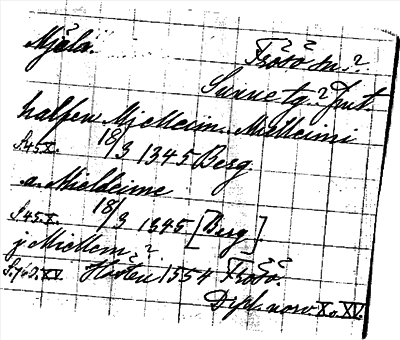 Mjäla. Frösö sn. ?.
Sunne tg. ? Jmt.
halfen Mjelleim. Mielleimi
S.45 X. 18/3 1345 Berg
a. Mieldeime
S.45 X. 18/3 1345 [Berg].
j Miellem ?.
S.760. XV. Hösten 1554 Frösö.
Dipl. norv. X. o. XV.